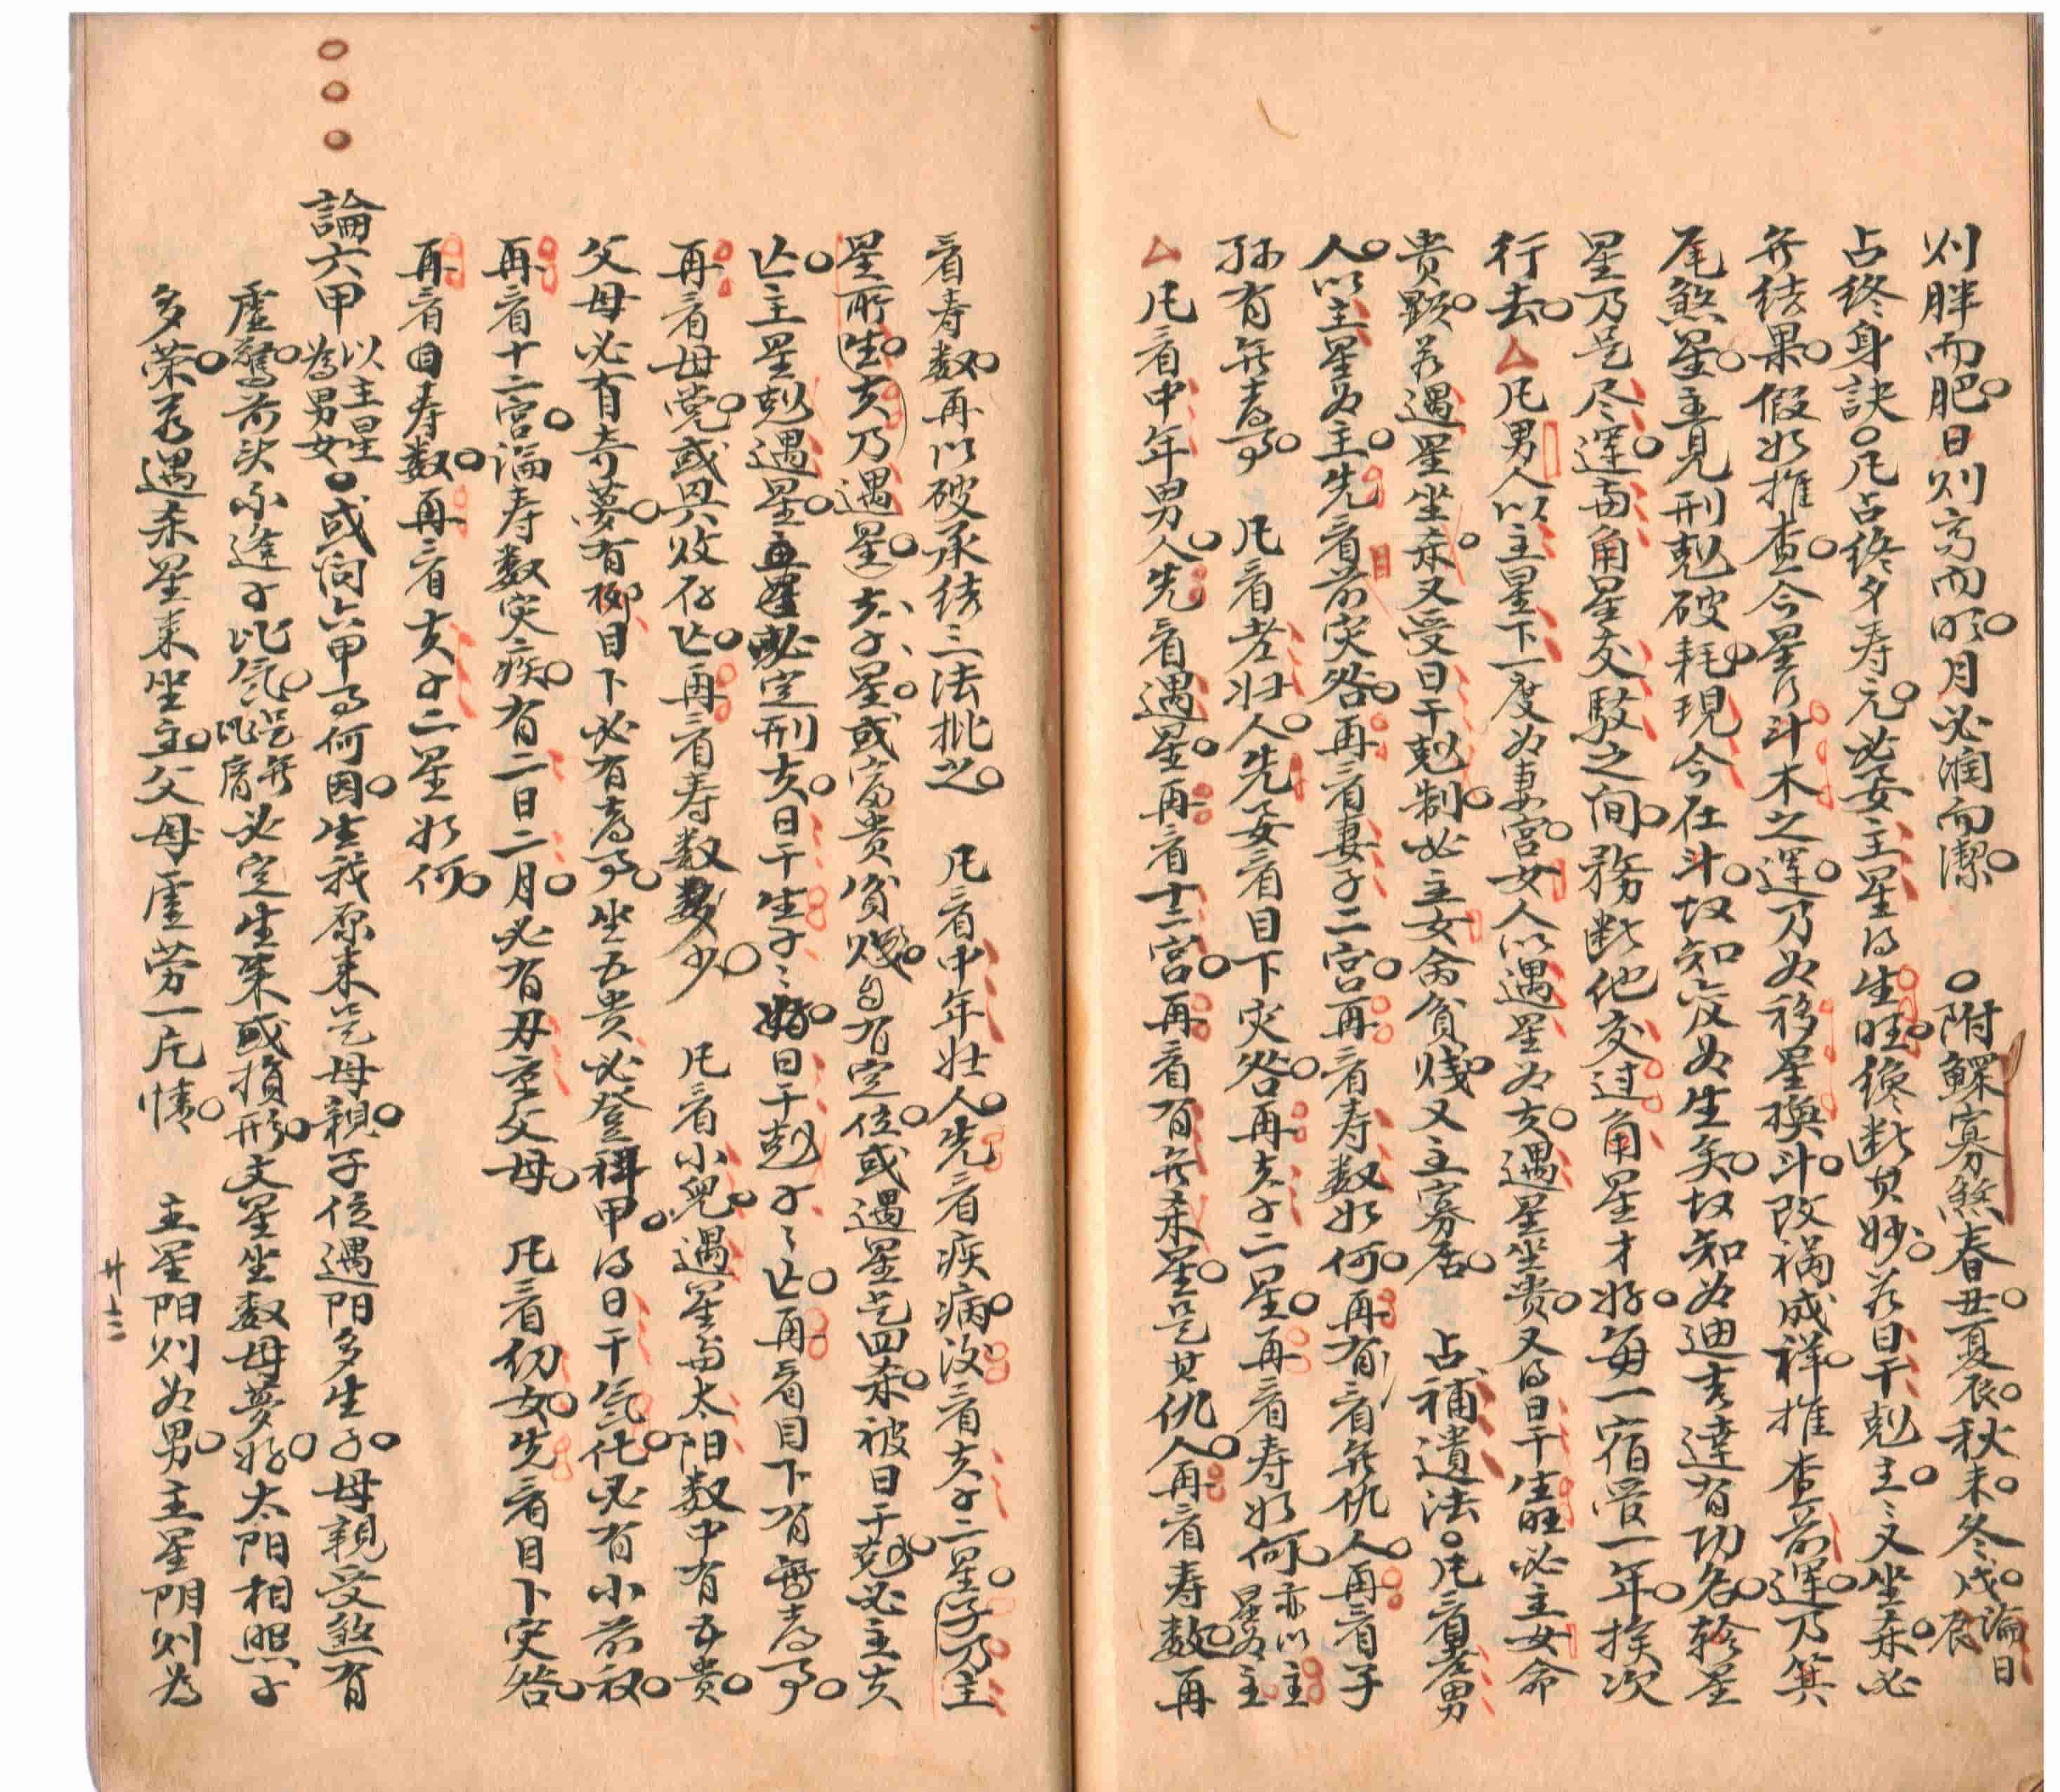 则胖而肥日则高而明月必润而潔　附鰥寡煞春丑夏辰秋未冬戌論日辰
占终身訣凡占终身寿元必要主星得生旺俊断其妙若日干剋主主又坐杀必
無结果假如推查今星行斗木之運乃为移星换斗改禍成祥推查前運乃箕
尾煞星主見刑剋破耗現今在斗故知反为生矣故知为迪吉達有功名轸星
星乃是尽運與角星交駁之间務断他交过角星才好每一宿管一年挨次
行去△凡男人以主星下一度为妻宮女人以遇星为夫遇星坐贵又得日干生旺必主女命
贵顯若遇星坐杀又受日干剋制必主女命貧贱又主寡居　占補遺法凡看老男
人以主星为主先看前灾咎再看妻子二宮再看寿数如何再有看無仇人再看子
孫有無喜事　凡看老妇人先要看目下灾咎再夫子二星再看寿如何亦以主星为主
△凡看中年男人先看遇星再看十二宮再看有無杀星是其仇人再看寿数再
看寿数再以破承结三法批之　凡看中年妇人先看疾病次看夫子二星子乃主
星所生夫乃遇星夫子星或富贵貧贱自有定位或遇星是四杀被日干剋必主夫
亡主星剋遇星必定刑夫日干生子子好日干剋子子亡再看目下有無喜事
再看母党或興败存亡再看寿数多少　凡看小兒遇星與太阳数中有五贵
父母必有奇夢有柳目下必有喜事坐五贵必登科甲得日干气化必有小前程
再看十二宮論寿数灾疾有二日二月必有母重父母　凡看幼女先看目下灾咎
再看目寿数再看夫子二星如何
論六甲以主星為男女或问六甲事何因生我原来是母親子位遇阳多生子母親受煞有
虛驚若决不逢子比气必定生来或損形文星坐数母夢好太阳相照子
多荣若遇杀星来坐主父母虛劳一片情　主星阳则为男主星阴则為
廿二